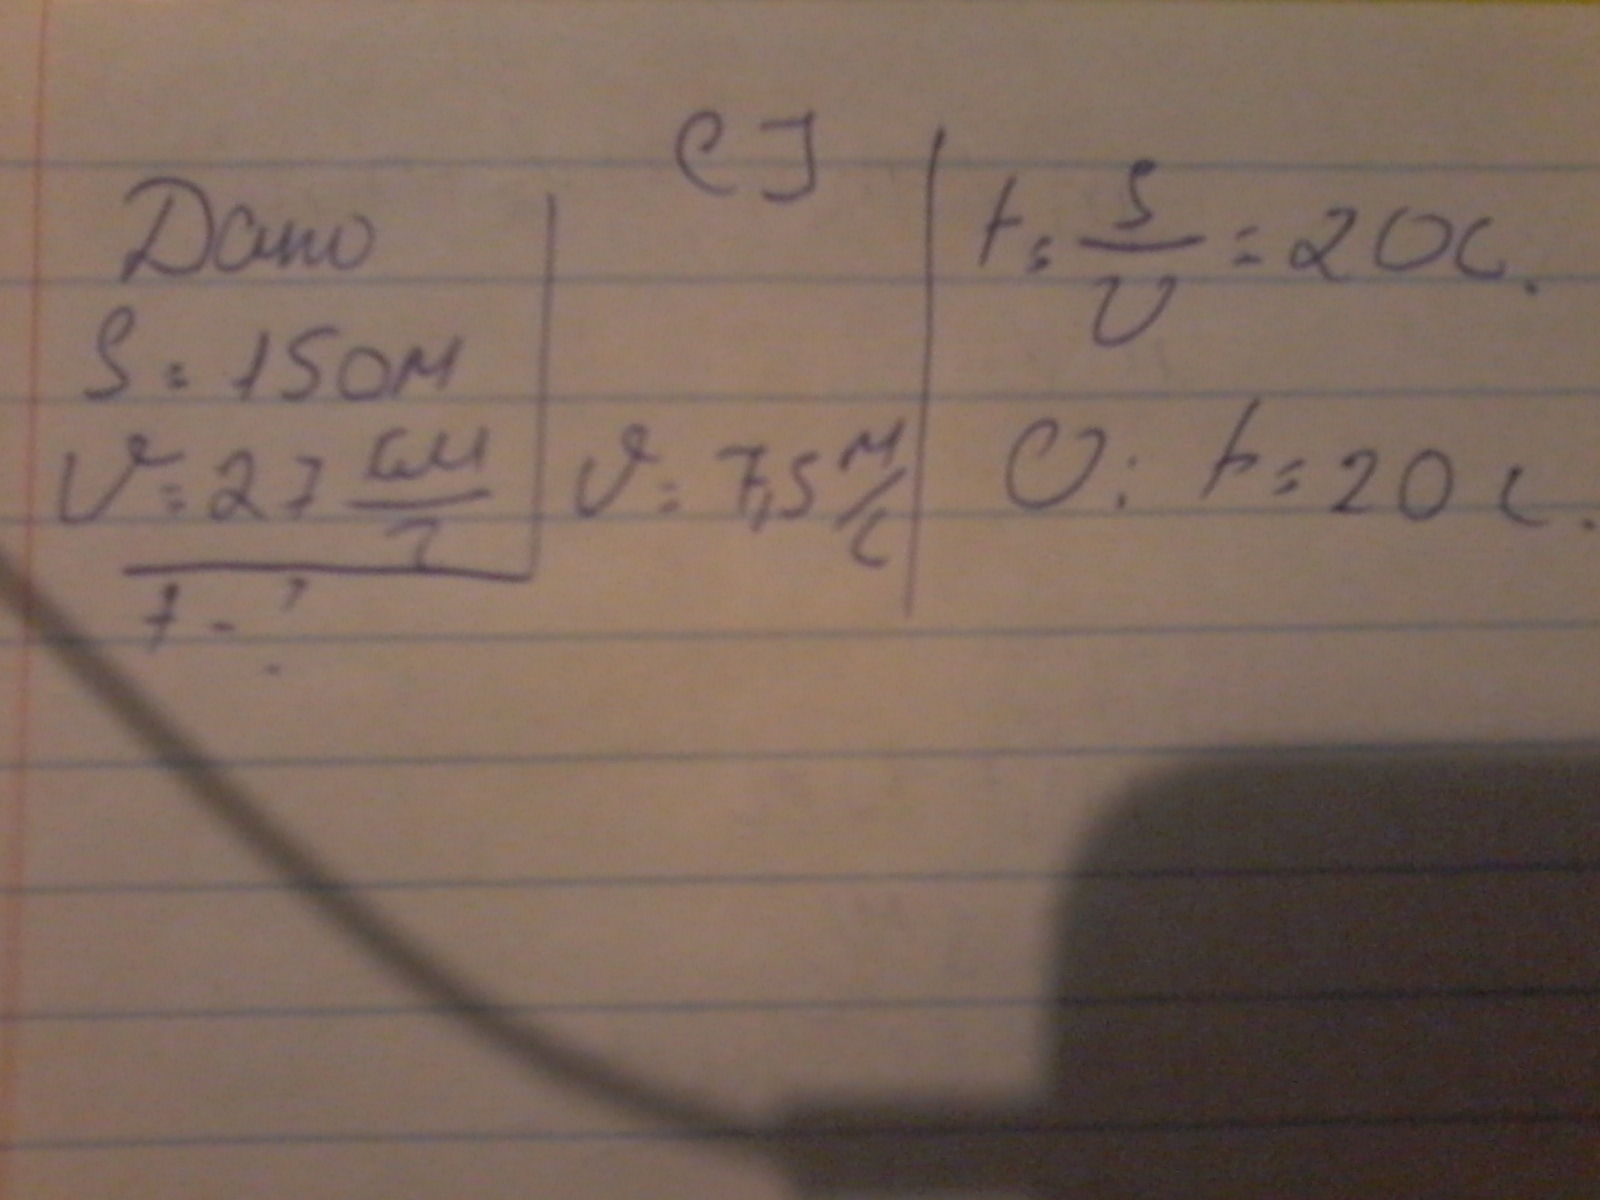 Дано
S = 150м
V = 27 км/ч
t - ?
СJ
V = 7,5 м/с
t = S/V = 20с.
О: t = 20 с.